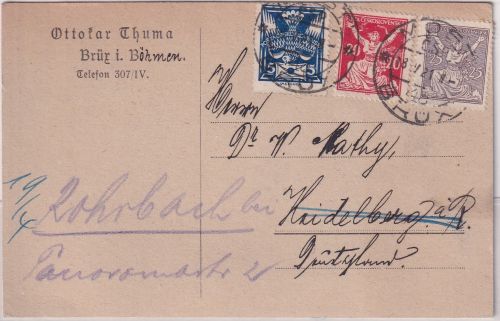 Ottokar Thuma
Brüx i. Böhmen.
Telefon 307/IV.
5 5
20
ČESKOSLOVENSKÁ
25 25
MOST
BRÜX
Herrn
Dr. V. Mathy,
Heidelberg. a/R.
Deutschland.
19/4
Rohrbach bei
Panoramastr 2